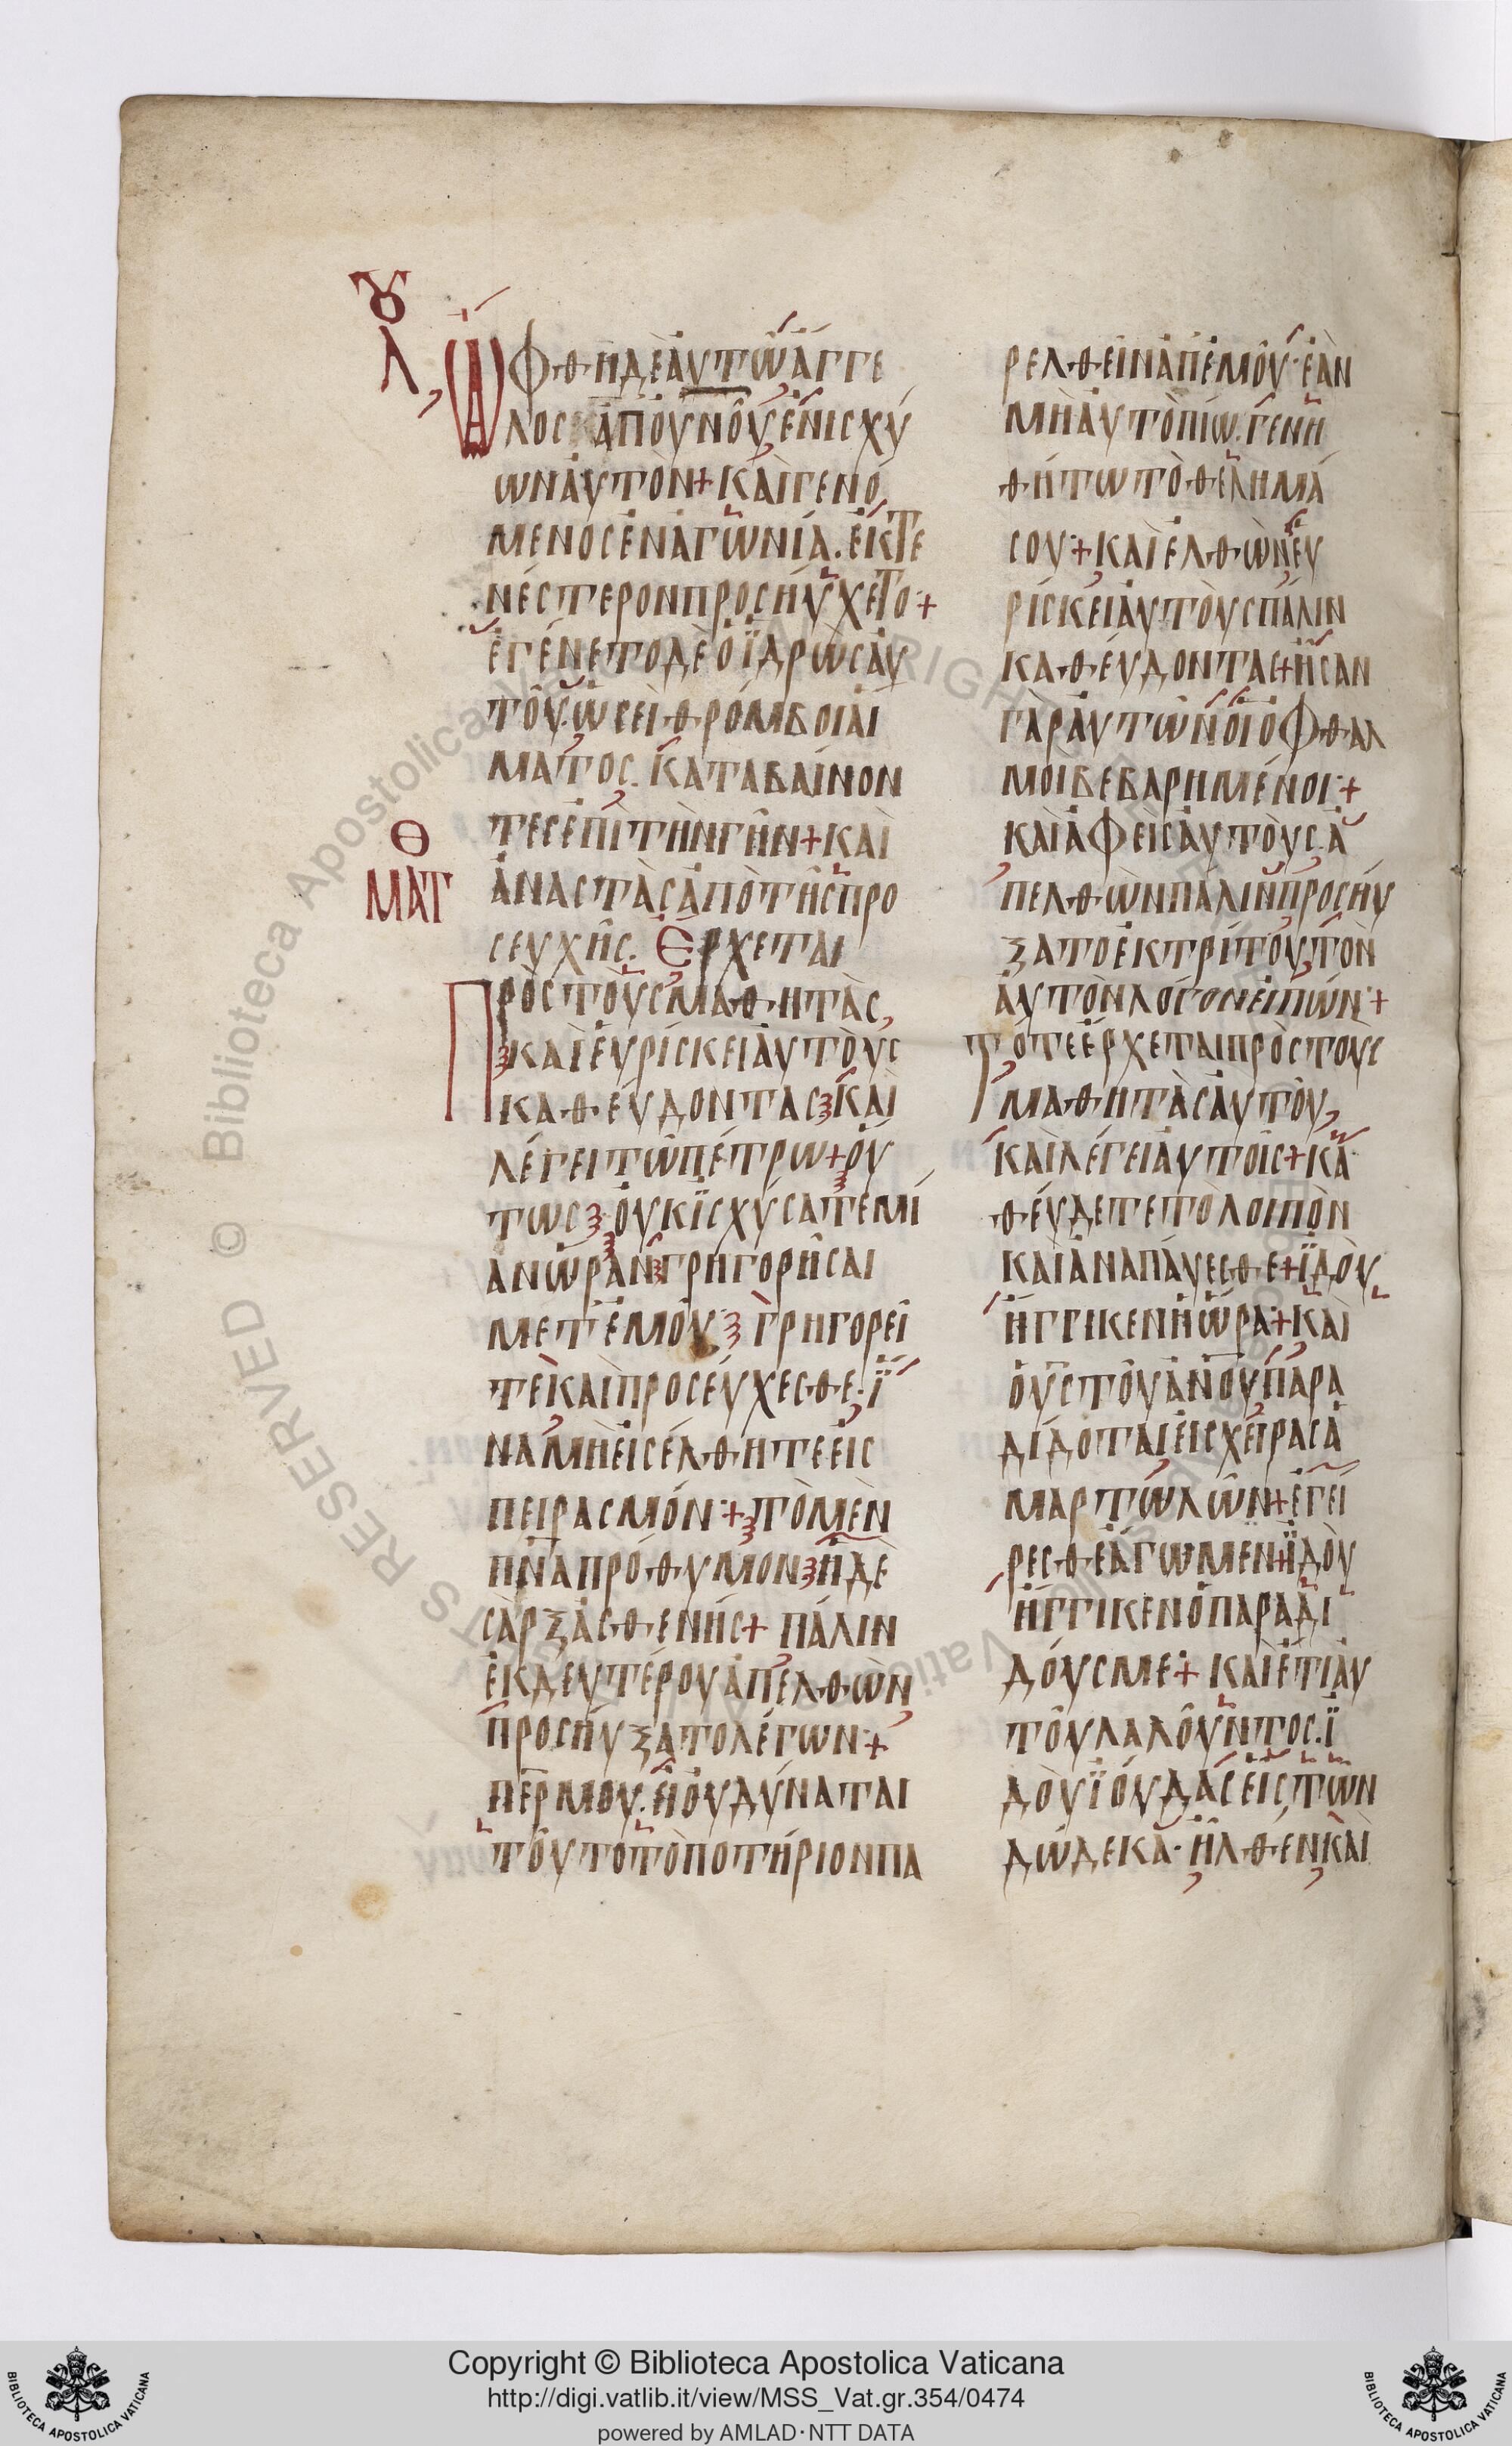 ȣ
Λ
ὬΦΘΗ ΔΕ ἈΥΤΩ ἈΓΓΕ
ΛΟΣ ἈΠ ΟΥΝΟΥ ἘΝΙΣΧΥ
ΩΝ ἈΥΤΟΝ + ΚΑΙ ΓΕΝΟ
ΜΕΝΟΣ ἘΝ ἈΓΩΝΙΑ. ἘΚΤΕ
ΝΕΣΤΕΡΟΝ ΠΡΟΣΗΥΧΕΤΟ +
ἘΓΕΝΕΤΟ ΔΕ Ὁ ΪΔΡΩΣ ἈΥ
ΤΟΥ. ὩΣΕΙ ΘΡΟΜΒΟΙ ΑΙ
ΜΑΤΟΣ. ΚΑΤΑΒΑΙΝΟΝ
ΤΕΣ ἘΠΙ ΤΗΝ ΓΗΝ + ΚΑΙ
Θ
ΜΑΤ
ἈΝΑΣΤΑΣ ἈΠΟ ΤΗΣ ΠΡΟ
ΣΕΥΧΗΣ. ΕΡΧΕΤΑΙ
ΠΡΟΣ ΤΟΥΣ ΜΑΘΗΤΑΣ,
ΚΑΙ ἘΥΡΙΣΚΕΙ ἈΥΤΟΥΣ
ΚΑΘΕΥΔΟΝΤΑΣ ΚΑΙ
ΛΕΓΕΙ ΤΩ ΠΕΤΡΩ + ΟΥ
ΤΩΣ ΟΥΚ ΪΣΧΥΣΑΤΕ ΜΙ
ΑΝ ὩΡΑΝ ΓΡΗΓΟΡΗΣΑΙ
ΜΕΤ ἘΜΟΥ ΓΡΗΓΟΡΕΙ
ΤΕ ΚΑΙ ΠΡΟΣΕΥΧΕΣΘΕ. Ϊ
ΝΑ ΜΗ ἘΙΣΕΛΘΗΤΕ ἘΙΣ
ΠΕΙΡΑΣΜΟΝ + ΤΟ ΜΕΝ
ΠΝΑ ΠΡΟΘΥΜΟΝ Η ΔΕ
ΣΑΡΞ ἈΣΘΕΝΗΣ + ΠΑΛΙΝ
ἘΚ ΔΕΥΤΕΡΟΥ ἈΠΕΛΘΩΝ
ΠΡΟΣΗΥΞΑΤΟ ΛΕΓΩΝ +
ΠΕΡ ΜΟΥ. ἘΙ ΟΥ ΔΥΝΑΤΑΙ
ΤΟΥΤΟ ΤΟ ΠΟΤΗΡΙΟΝ ΠΑ
ΡΕΛΘΕΙΝ ἈΠ ἘΜΟΥ. ἘΑΝ
ΜΗ ἈΥΤΟ ΠΙΩ. ΓΕΝΗ
ΘΗΤΩ ΤΟ ΘΕΛΗΜΑ
ΣΟΥ + ΚΑΙ ἘΛΘΩΝ ἘΥ
ΡΙΣΚΕΙ ἈΥΤΟΥΣ ΠΑΛΙΝ
ΚΑΘΕΥΔΟΝΤΑΣ + ΗΣΑΝ
ΓΑΡ ἈΥΤΩΝ ΟΙ ΟΦΘΑΛ
ΜΟΙ ΒΕΒΑΡΗΜΕΝΟΙ +
ΚΑΙ ἈΦΕΙΣ ἈΥΤΟΥΣ. Ἀ
ΠΕΛΘΩΝ ΠΑΛΙΝ ΠΡΟΣΗΥ
ΞΑΤΟ ἘΚ ΤΡΙΤΟΥ ΤΟΝ
ἈΥΤΟΝ ΛΟΓΟΝ ΕΙΠΩΝ +
ΤΟΤΕ ἘΡΧΕΤΑΙ ΠΡΟΣ ΤΟΥΣ
ΜΑΘΗΤΑΣ ἈΥΤΟΥ,
ΚΑΙ ΛΕΓΕΙ ἈΥΤΟΙΣ + ΚΑ
ΘΕΥΔΕΤΕ ΤΟ ΛΟΙΠΟΝ
ΚΑΙ ἈΝΑΠΑΥΕΣΘΕ + ΪΔΟΥ
ΗΓΓΙΚΕΝ Η ὩΡΑ + ΚΑΙ
Ὁ ΥΣ ΤΟΥ ἈΝΟΥ ΠΑΡΑ
ΔΙΔΟΤΑΙ ΕΙΣ ΧΕΙΡΑΣ Ἀ
ΜΑΡΤΩΛΩΝ + ἘΓΕΙ
ΡΕΣΘΕ ἈΓΩΜΕΝ + ΪΔΟΥ
ΗΓΓΙΚΕΝ Ὁ ΠΑΡΑΔΙ
ΔΟΥΣ ΜΕ + ΚΑΙ ἘΤΙ ἈΥ
ΤΟΥ ΛΑΛΟΥΝΤΟΣ. Ϊ
ΔΟΥ ΪΟΥΔΑΣ ΕΙΣ ΤΩΝ
ΔΩΔΕΚΑ. ΗΛΘΕΝ ΚΑΙ
© Biblioteca Apostolica Vaticana ALL RIGHTS RESERVED
BIBLIOTECA APOSTOLICA VATICANA
Copyright © Biblioteca Apostolica Vaticana
http://digi.vatlib.it/view/MSS_Vat.gr.354/0474
powered by AMLAD·NTT DATA
BIBLIOTECA APOSTOLICA VATICANA